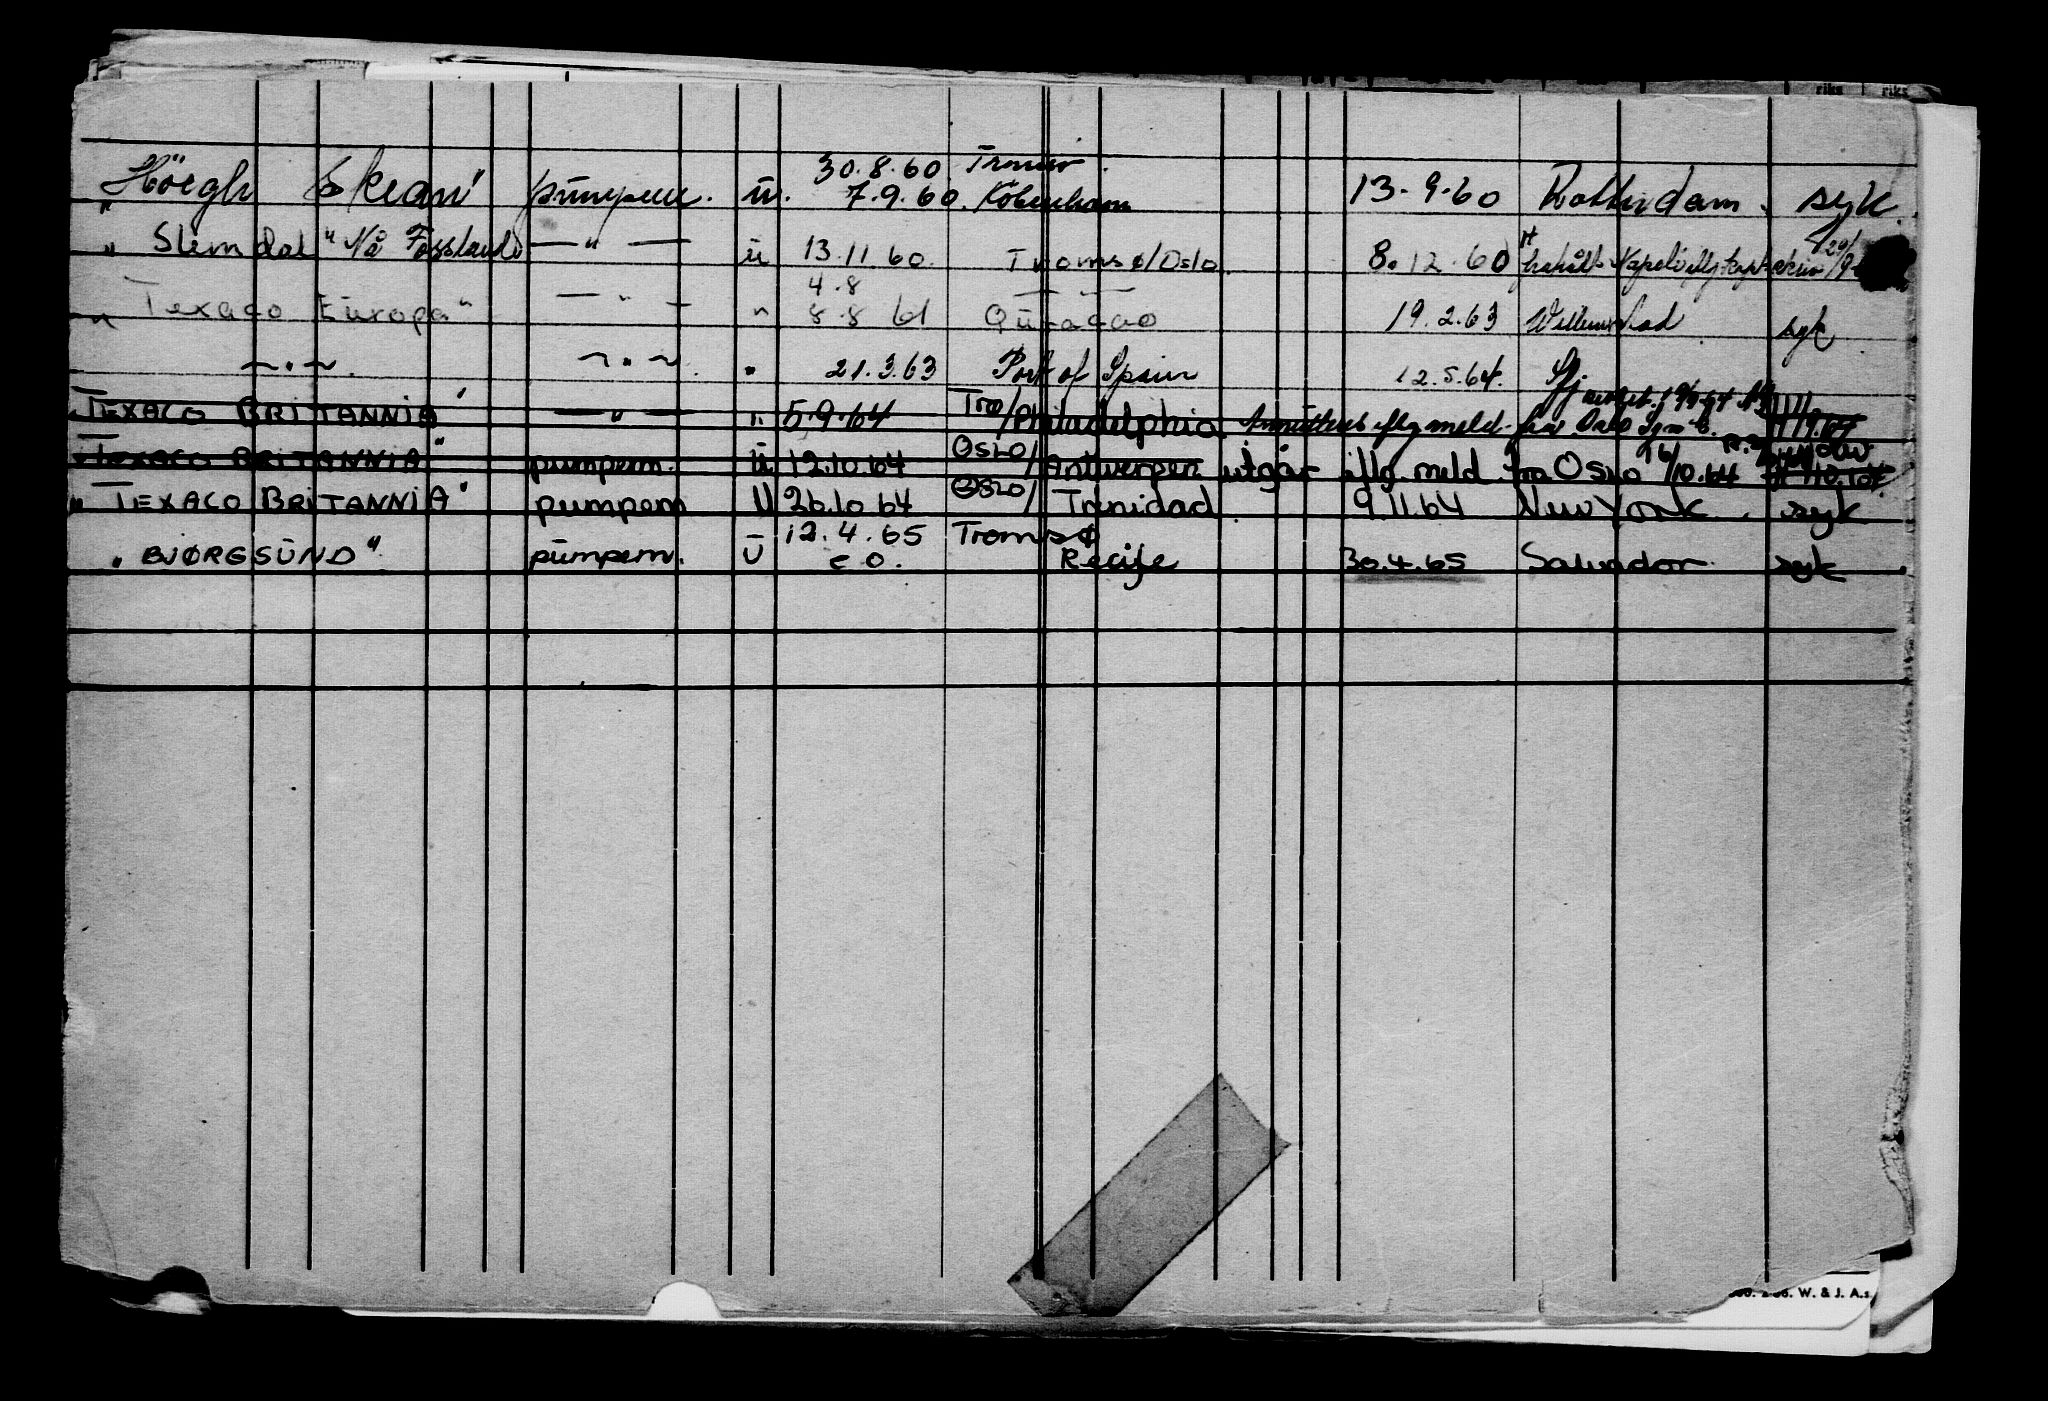 riks riks
"Höegh Skean" pumpem. u. 30.8.60 Tromsø 7.9.60. København 13-9-60 Rotterdam. syk.
" Slemdal" Nå Fossland —"— u 13.11.60. Tromsø/Oslo 8.12.60
" Texaco Europa" —"— " 4.8 8.8 61 Curacao 19.2.63 Willemstad syk
~"~ ~"~ " 21.3.63 Port of Spain 12.5.64. Sfj.
TEXACO BRITANNIA" —"— " 5.9.64 Tro/Philadelphia Annullert iflg meld. fra Oslo
"TEXACO BRITANNIA" pumpem. u 12.10.64 OSLO/Antwerpen utgår iflg. meld. fra Oslo 16/10.64
"TEXACO BRITANNIA" pumpem U 26.10.64 OSLO/Trinidad 9.11.64 New York. syk
"BJØRGSUND" pumpem. U 12.4.65 c o. Tromsø Recife 30.4.65 Salvador syk
W. & J. A.s.